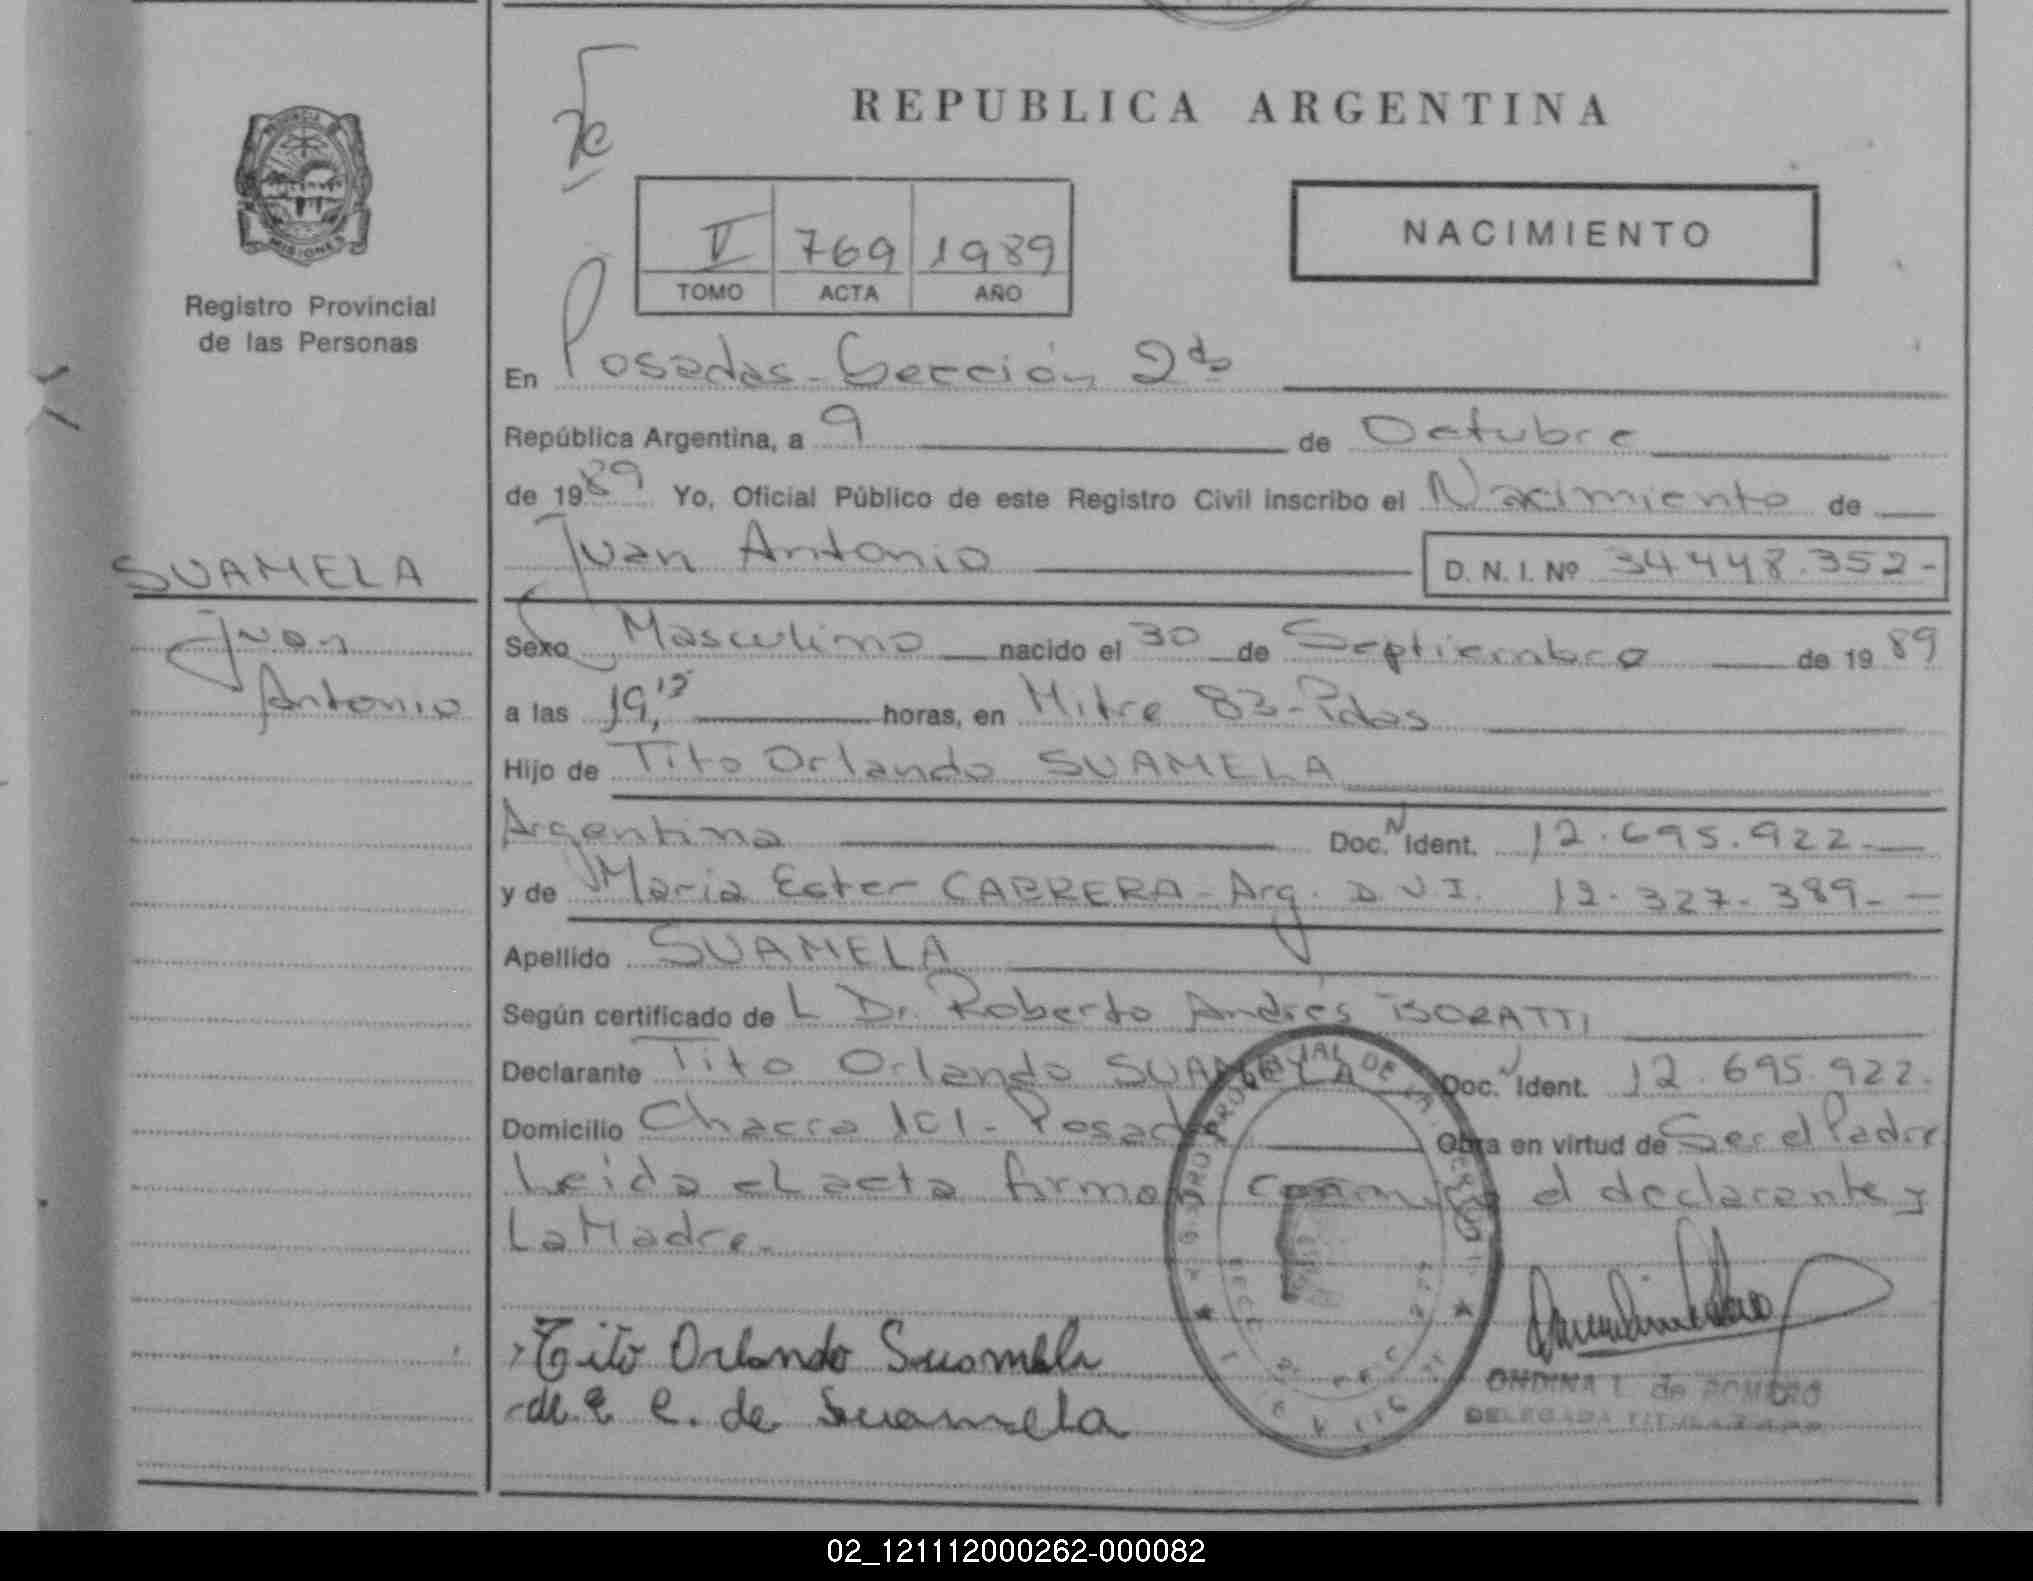 REPUBLICA ARGENTINA
PROVINCIA
MISIONES
Registro Provincial
de las Personas
V 769 1989
TOMO ACTA AÑO
NACIMIENTO
En Posadas - Sección 2da
República Argentina, a 9 de Octubre
de 1989 Yo, Oficial Público de este Registro Civil inscribo el Nacimiento de
SUAMELA
Juan Antonio D. N. I. Nº 34448.352-
Juan
Antonio
Sexo Masculino nacido el 30 de Septiembre de 1989
a las 19, horas, en Mitre 83 - Pdas
Hijo de Tito Orlando SUAMELA
Argentina Doc. N Ident. 12.695.922-
y de María Ester CABRERA - Arg. D N I. 12.327.389-
Apellido SUAMELA
Según certificado de L Dr. Roberto Andrés BORATTI
Declarante Tito Orlando SUAMELA Doc. N Ident. 12.695.922.
Domicilio Chacra 101 - Posadas Obra en virtud de Ser el Padre
Leida el acta firman conmigo el declarante y
La Madre.
Tito Orlando Suamela
de Suamela
ONDINA L. de ROMERO
DELEGADA TITULAR
02_121112000262-000082